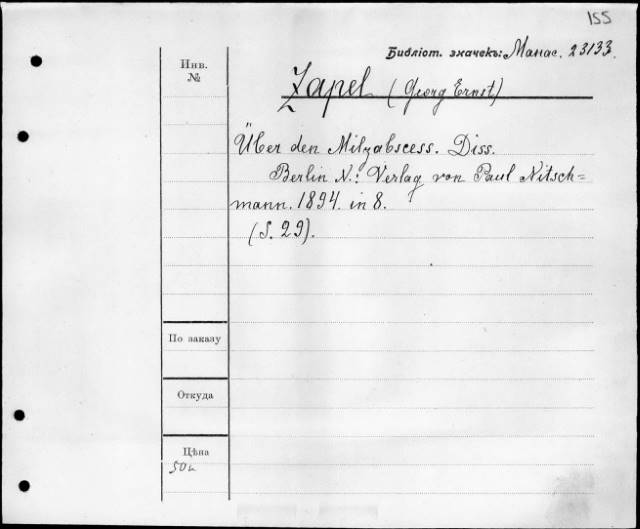 155
Библіот. значекъ: Манас. 23133.
Инв.
№
Zapel (Georg Ernst)
Über den Milzabscess. Diss.
Berlin N.: Verlag von Paul Nitsch=
mann. 1894. in 8.
(S. 29).
По заказу
Откуда
Цѣна